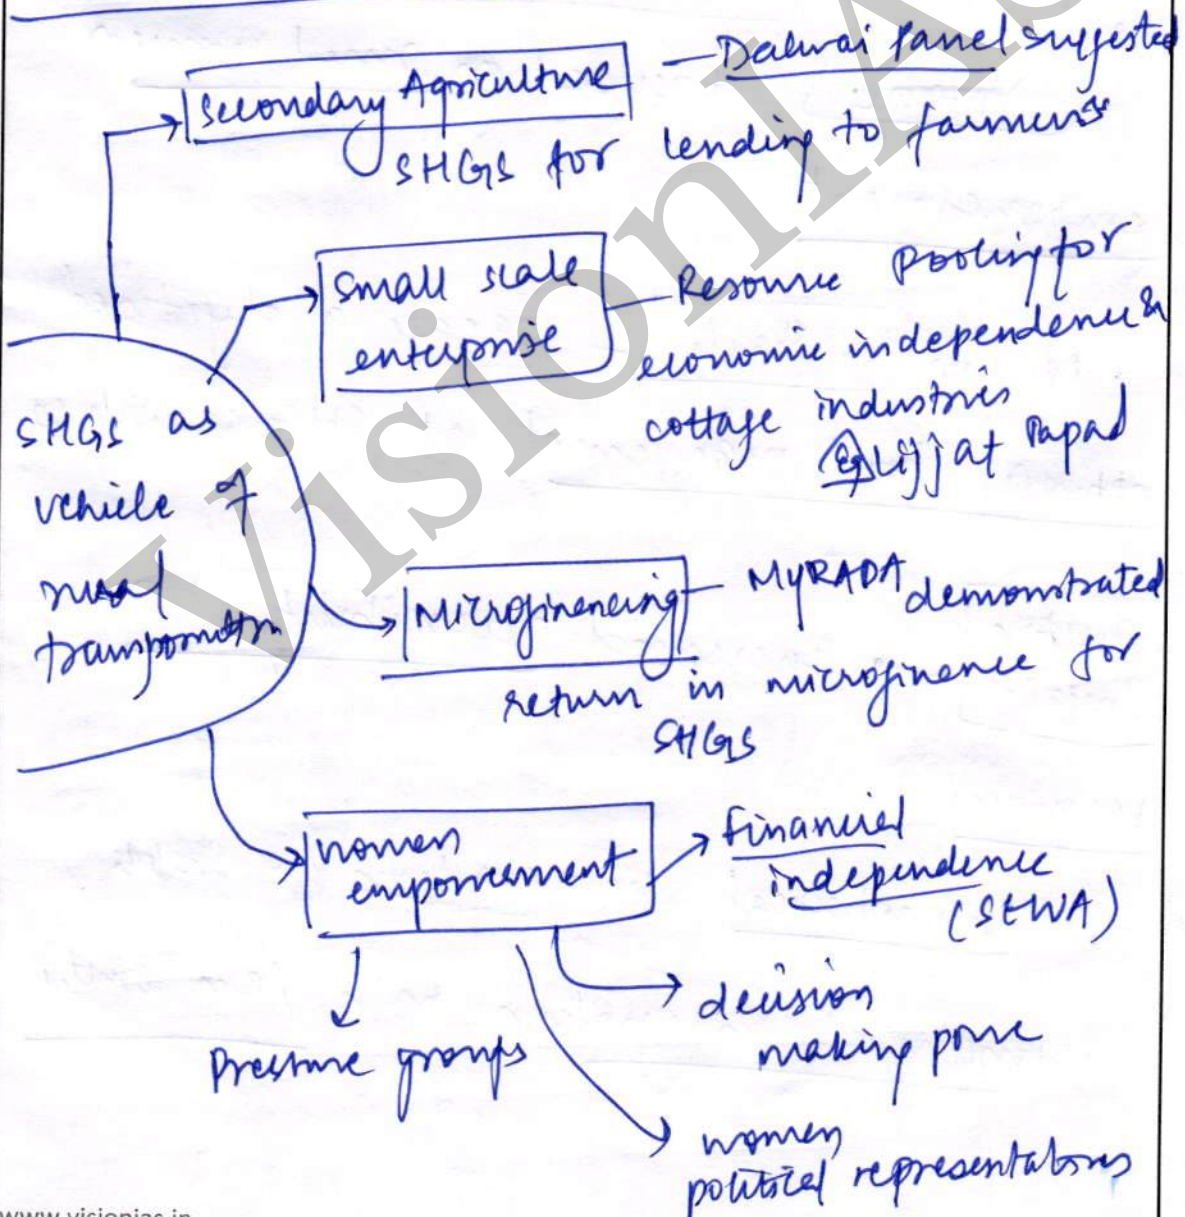 Secondary Agriculture — Dalwai Panel suggested
SHGs for lending to farmers
Small scale
enterprise
— Resource Pooling for
economic independence &
cottage industries
Eg Lijjat Papad
SHGs as
vehicle of
rural
transformation
Microfinancing — MYRADA demonstrated
return in microfinance for
SHGs
women
empowerment
financial
independence
(SEWA)
decision
making power
Pressure groups
women
political representatives
VisionIAS
www.visionias.in